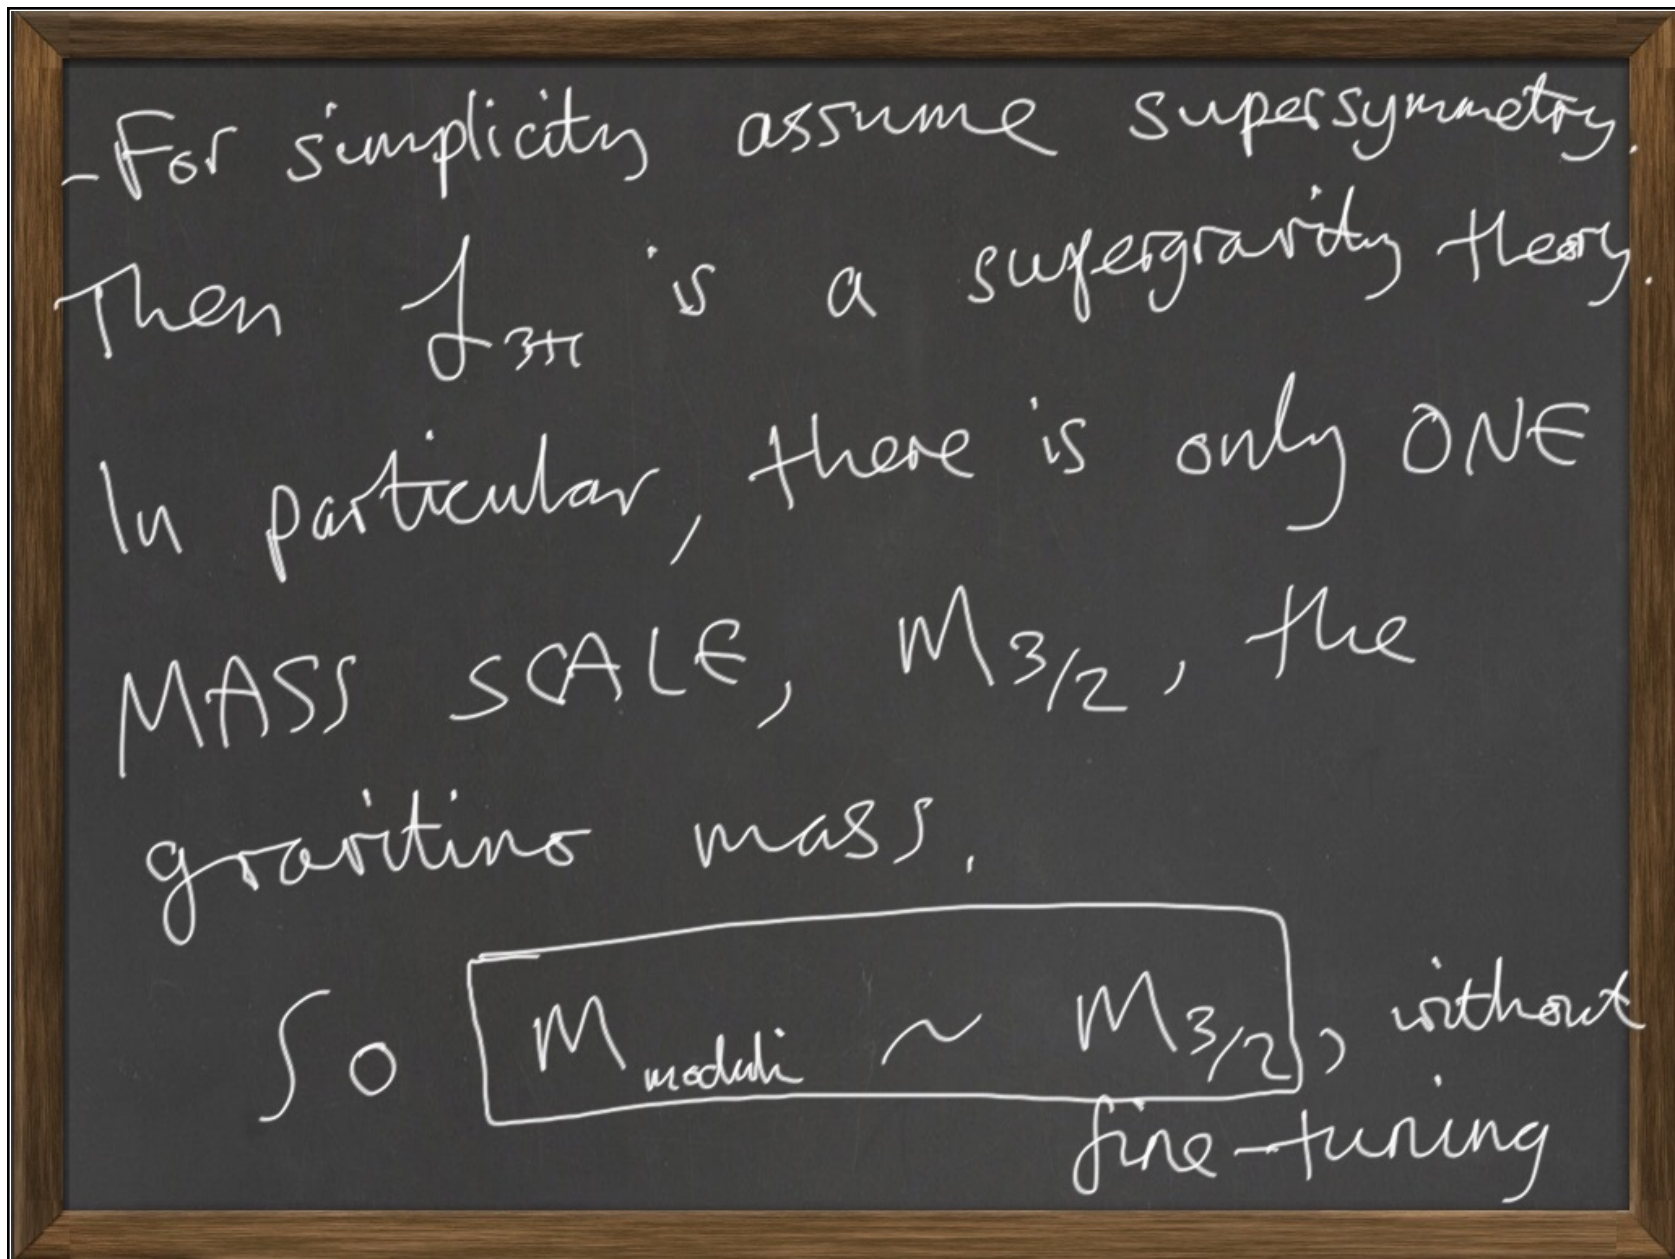 - For simplicity assume supersymmetry.
Then ℒ₃₊₁ is a supergravity theory.
In particular, there is only ONE
MASS SCALE, M₃/₂, the
gravitino mass.
So M_moduli ~ M₃/₂, without
fine-tuning